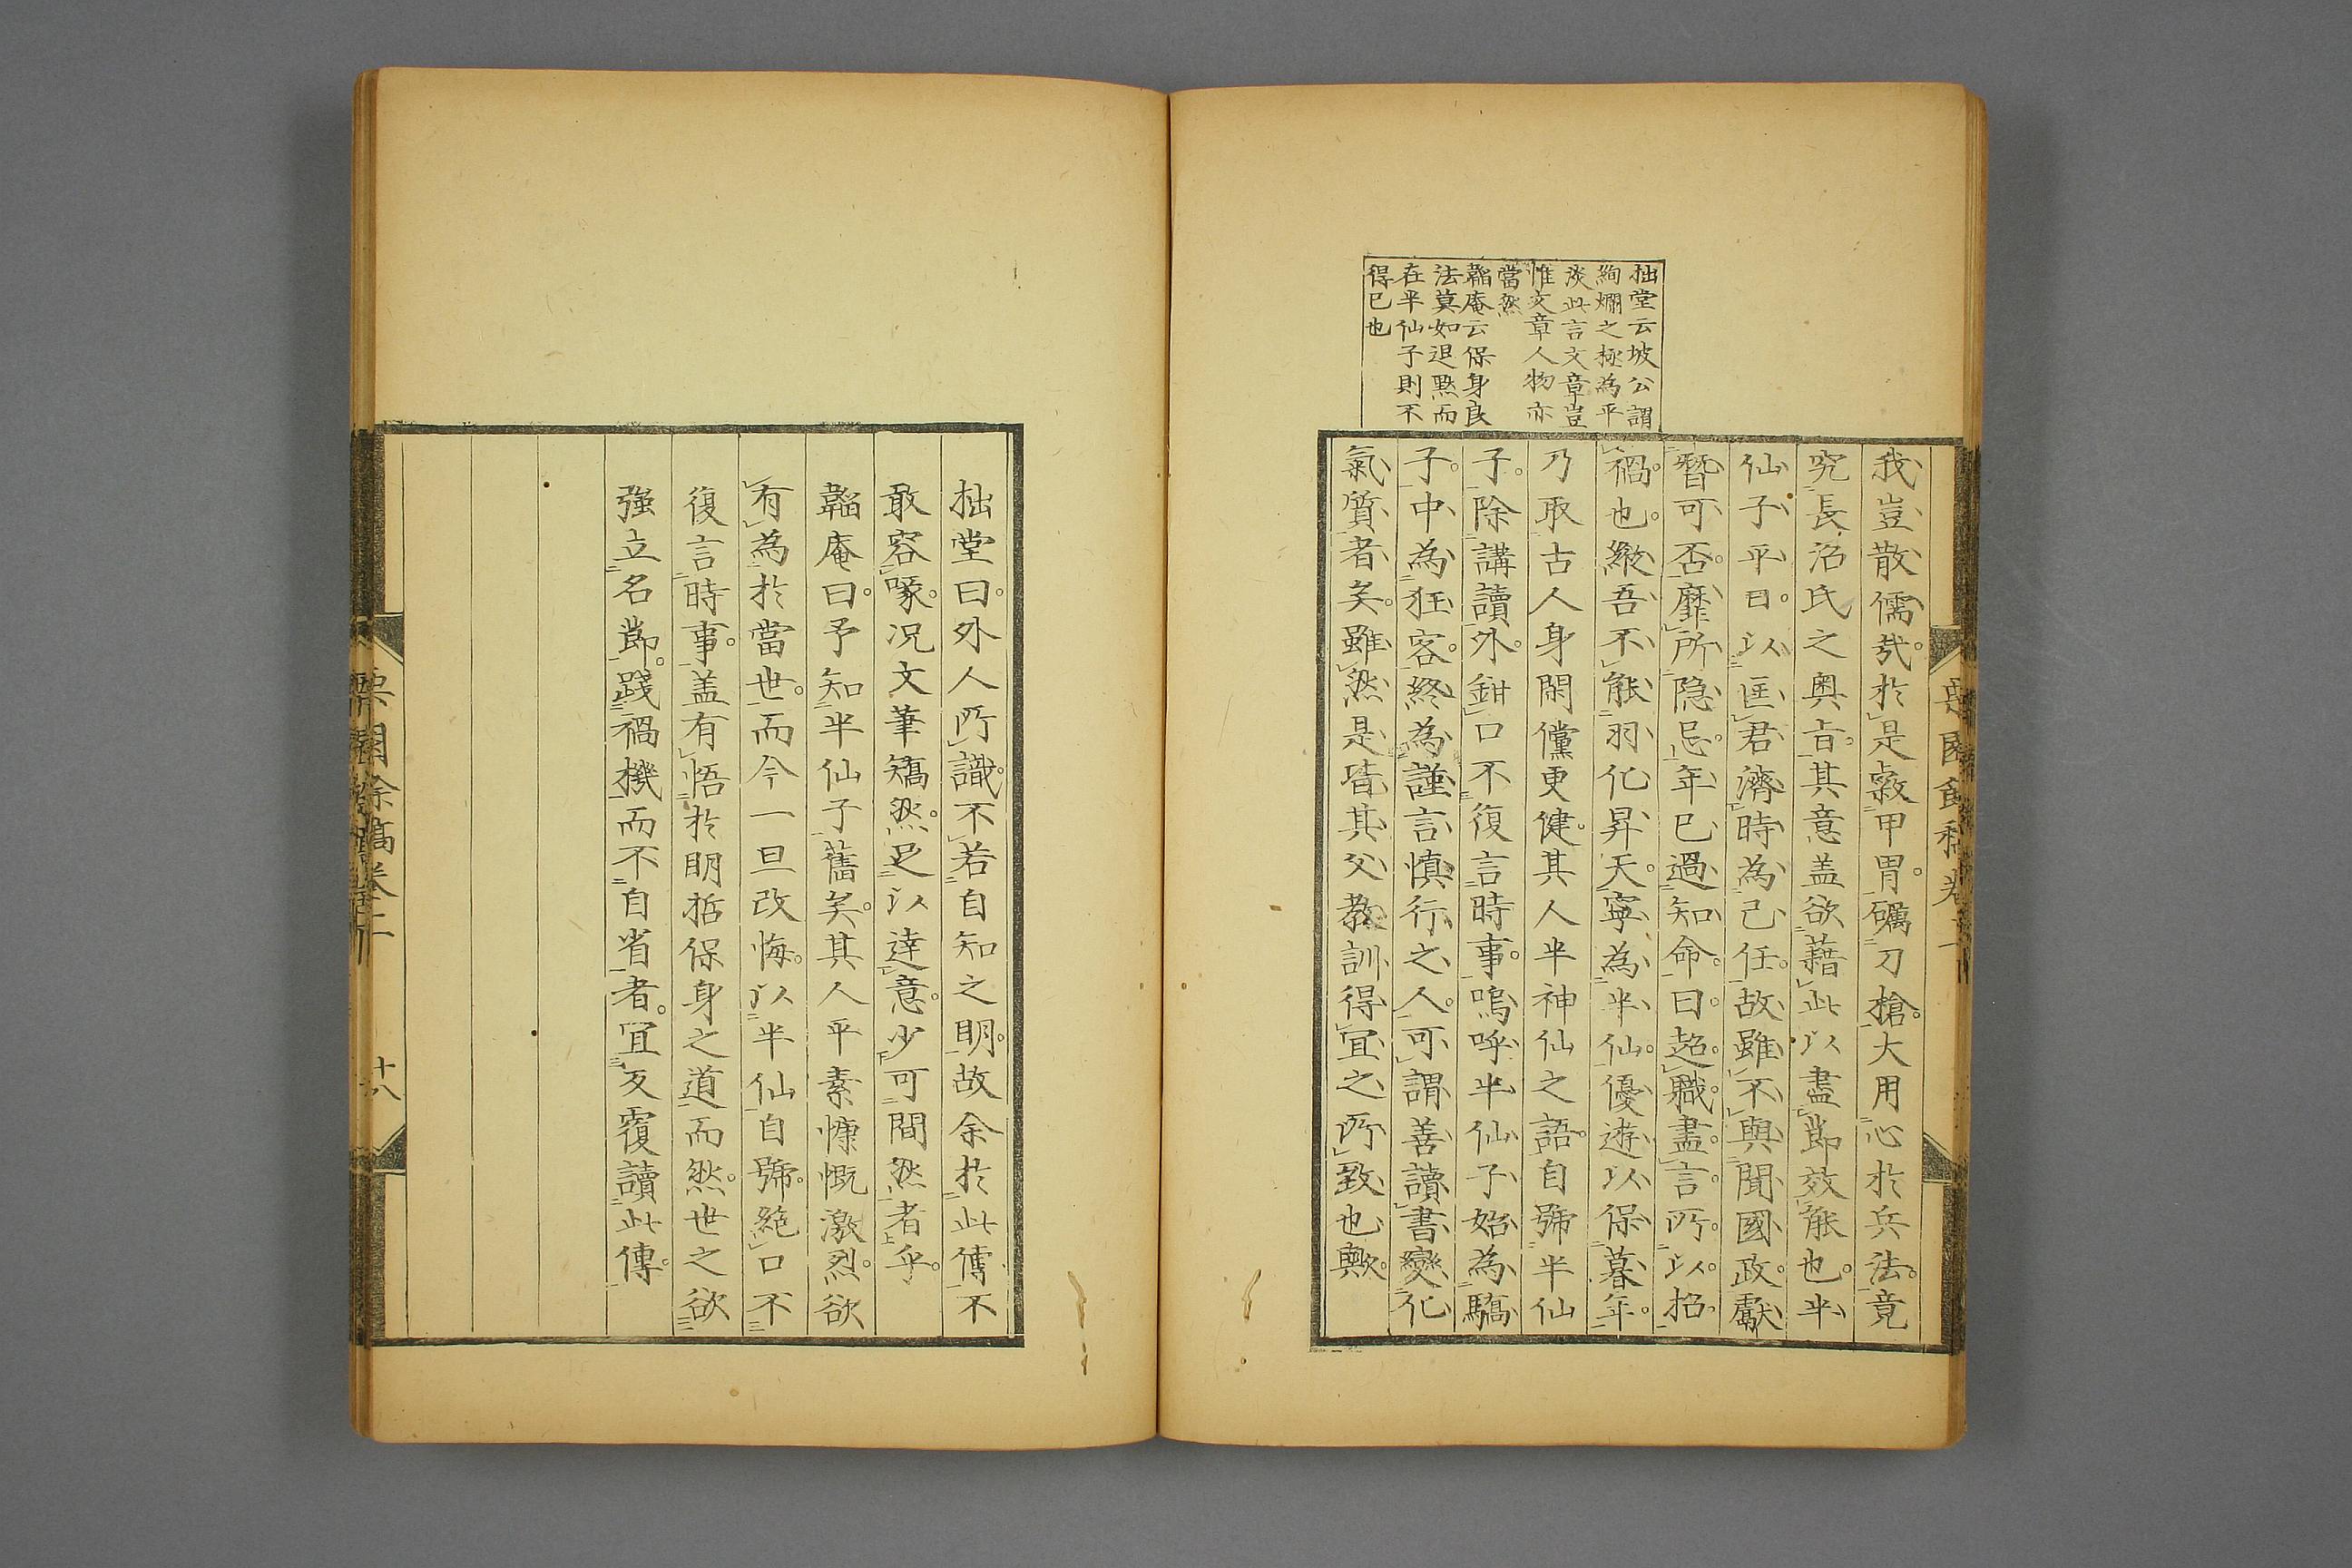 拙堂云坡公謂
絢爛之極為平
淡此言文章豈
惟文章人物亦
當然
韜庵云保身良
法莫如退黙而
在半仙子則不
得已也
我豈散儒哉於是擐甲冑礪刀槍大用心於兵法竟
究長沼氏之奥旨其意盖欲藉此以盡節效能也半
仙子平日以匡君濟時為己任故雖不與聞國政獻
替可否靡所隐忌年已過知命曰超職盡言所以招
禍也縱吾不能羽化昇天寧為半仙優遊以保暮年
乃取古人身閑儻更健其人半神仙之語自號半仙
子除講讀外鉗口不復言時事嗚呼半仙子始為驕
子中為狂客終為謹言慎行之人可謂善讀書變化
氣質者矣雖然是皆其父教訓得宜之所致也歟
拙堂曰外人所識不若自知之明故余於此傳不
敢容喙况文筆矯然足以達意少可間然者乎
韜庵曰予知半仙子舊矣其人平素慷慨激烈欲
有為於當世而今一旦改悔以半仙自號絶口不
復言時事盖有悟於明哲保身之道而然世之欲
强立名節踐禍機而不自省者宜反覆讀此傳
十八